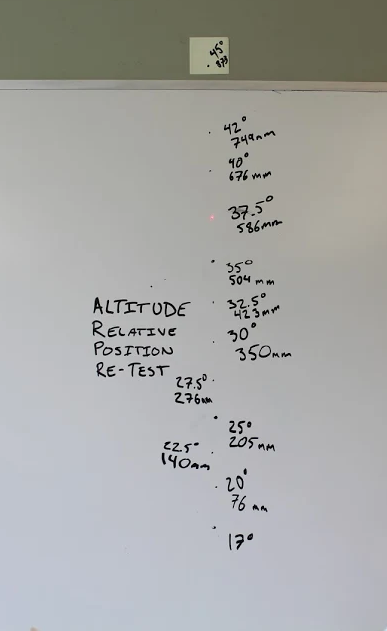 45°
873
42°
749mm
40°
676 mm
37.5°
586mm
35°
504 mm
32.5°
423mm
ALTITUDE
RELATIVE
POSITION
RE-TEST
30°
350mm
27.5°
276mm
25°
205mm
22.5°
140mm
20°
76 mm
17°